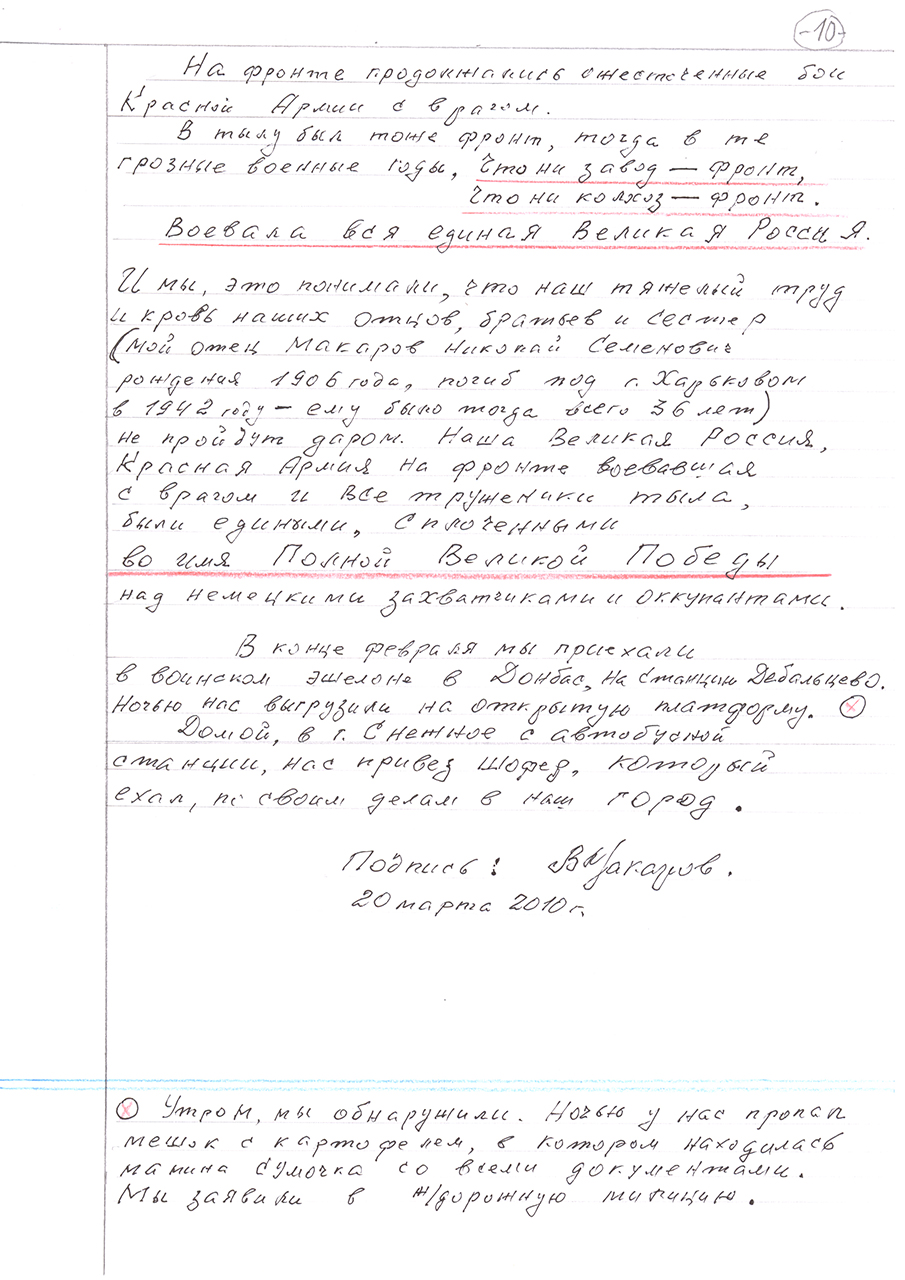 -10-
На фронте продолжались ожесточенные бои
Красной Армии с врагом.
В тылу был тоже фронт, тогда в те
грозные военные годы, что ни завод — фронт,
что ни колхоз — фронт.
Воевала вся единая Великая Россия.
И мы, это понимали, что наш тяжелый труд
и кровь наших отцов, братьев и сестер
(мой отец Макаров Николай Семенович
рождения 1906 года, погиб под г. Харьковом
в 1942 году — ему было тогда всего 36 лет)
не пройдут даром. Наша Великая Россия,
Красная Армия на фронте воевавшая
с врагом и все труженики тыла,
были едиными, сплоченными
во имя Полной Великой Победы
над немецкими захватчиками и оккупантами.
В конце февраля мы приехали
в воинском эшелоне в Донбас, на станцию Дебальцево.
Ночью нас выгрузили на открытую платформу. ⓧ
Домой, в г. Снежное с автобусной
станции, нас привез шофер, который
ехал, по своим делам в наш город.
Подпись: ВМакаров.
20 марта 2010 г.
ⓧ Утром, мы обнаружили. Ночью у нас пропал
мешок с картофелем, в котором находилась
мамина сумочка со всеми документами.
Мы заявили в ж/дорожную милицию.